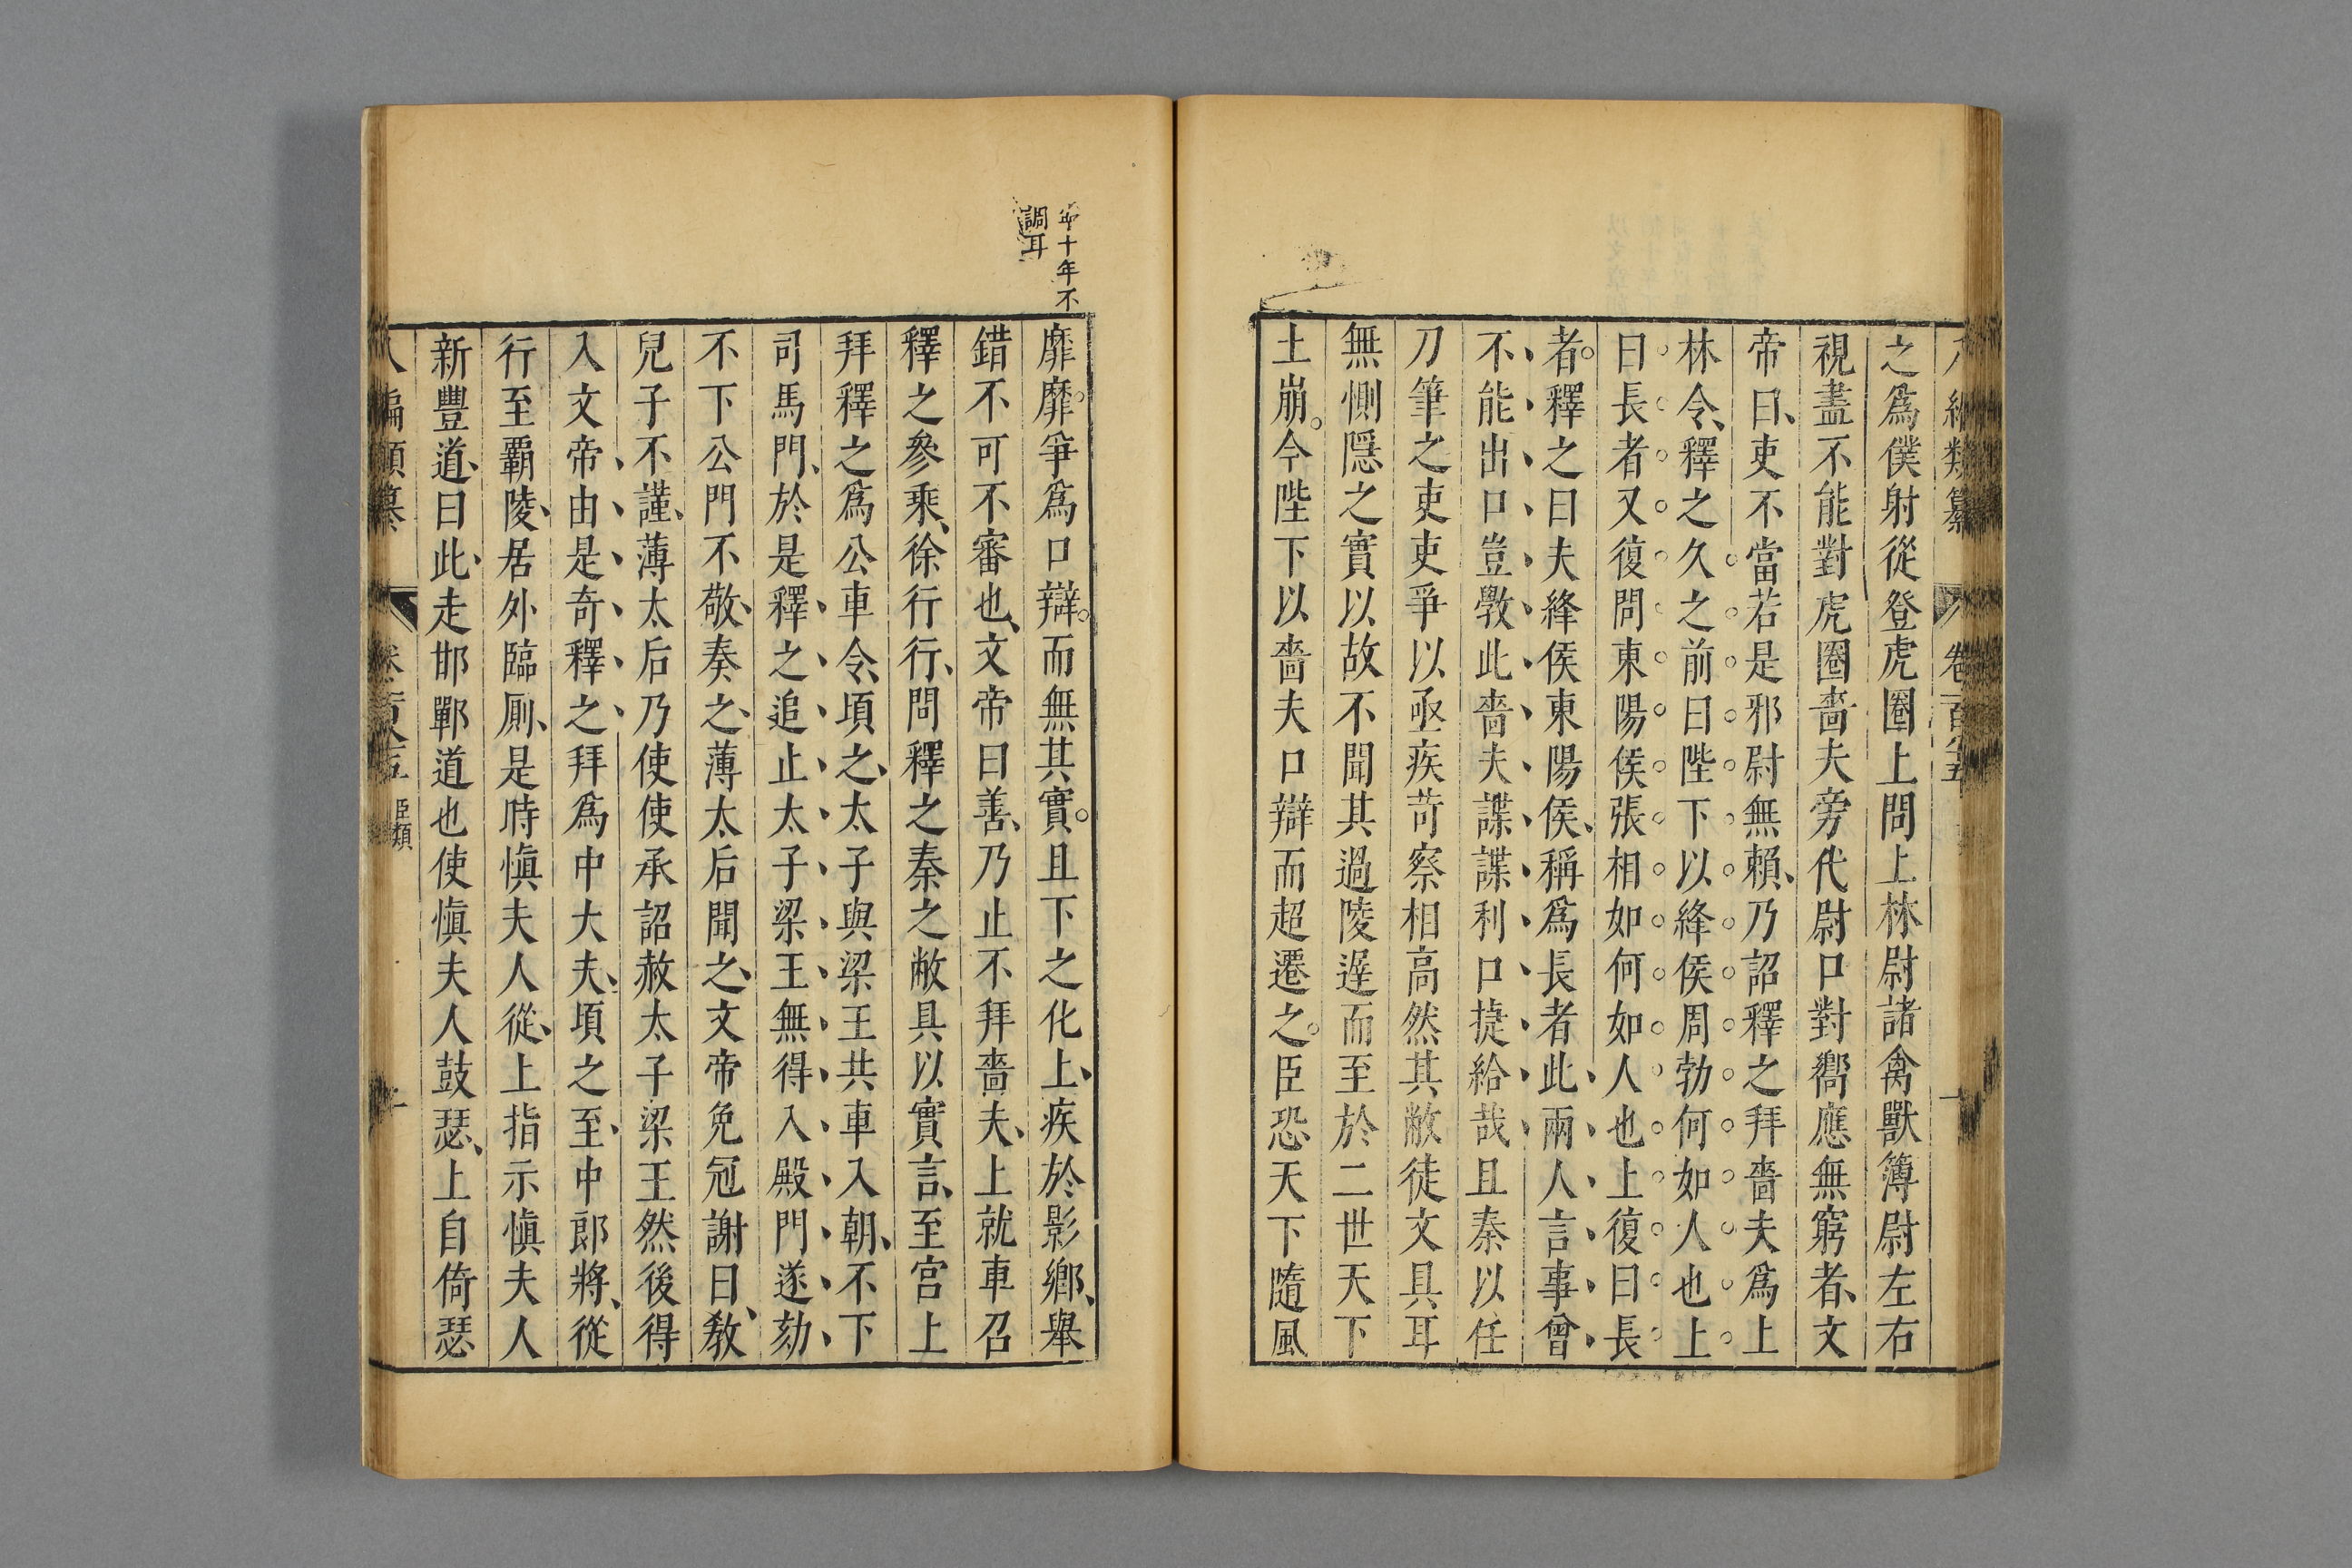 編類纂
卷一百八十五
之為僕射從登虎圈上問上林尉諸禽獸簿尉左右
視盡不能對虎圈嗇夫旁代尉口對嚮應無窮者、文
帝曰、吏不當若是邪尉無賴、乃詔釋之拜嗇夫爲上
林令、釋之久之前曰陛下以絳侯周勃何如人也上
曰長者又復問東陽侯張相如何如人也上復曰長
者。釋之曰夫絳侯東陽侯、稱爲長者此兩人言事曾
不能出口豈斆此嗇夫諜諜利口捷給哉且秦以任
刀筆之吏吏爭以亟疾苛察相高然其敝徒文具耳
無惻隱之實以故不聞其過陵遲而至於二世天下
土崩。今陛下以嗇夫口辯而超遷之。臣恐天下隨風
年十年不
調耳
靡靡爭爲口辯。而無其實。且下之化上、疾於影鄉、舉
錯不可不審也、文帝曰善、乃止不拜嗇夫、上就車召
釋之參乘、徐行行、問釋之秦之敝具以實言、至宮上
拜釋之爲公車令、頃之、太子與梁王共車入朝、不下
司馬門、於是釋之追止太子梁王無得入殿門遂劾
不下公門不敬、奏之、薄太后聞之、文帝免冠謝曰、教
兒子不謹、薄太后乃使使承詔赦太子梁王然後得
入文帝由是奇釋之拜爲中大夫、頃之至、中郎將、從
行至霸陵、居外臨厠、是時慎夫人從、上指示慎夫人
新豐道、曰此、走邯鄲道也使慎夫人鼓瑟、上自倚瑟
編類纂
臣類